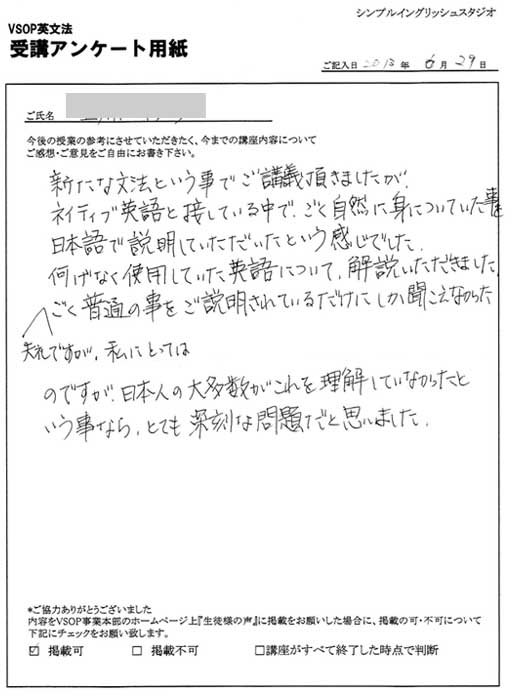 シンプルイングリッシュスタジオ
VSOP英文法
受講アンケート用紙
ご記入日 2013 年 6 月 29 日
ご氏名
今後の授業の参考にさせていただきたく、今までの講座内容について
ご感想・ご意見をご自由にお書き下さい。
新たな文法という事でご講義頂きましたが、
ネイティブ英語と接している中で、ごく自然に身についていた事を
日本語で説明していただいたという感じでした。
何げなく使用していた英語について、解説いただきました。
ごく普通の事をご説明されているだけにしか聞こえなかった
失礼ですが、私にとっては
のですが、日本人の大多数がこれを理解していなかったと
いう事なら、とても深刻な問題だと思いました。
*ご協力ありがとうございました
内容をVSOP事業本部のホームページ上『生徒様の声』に掲載をお願いした場合に、掲載の可・不可について
下記にチェックをお願い致します。
☑ 掲載可 □ 掲載不可 □講座がすべて終了した時点で判断